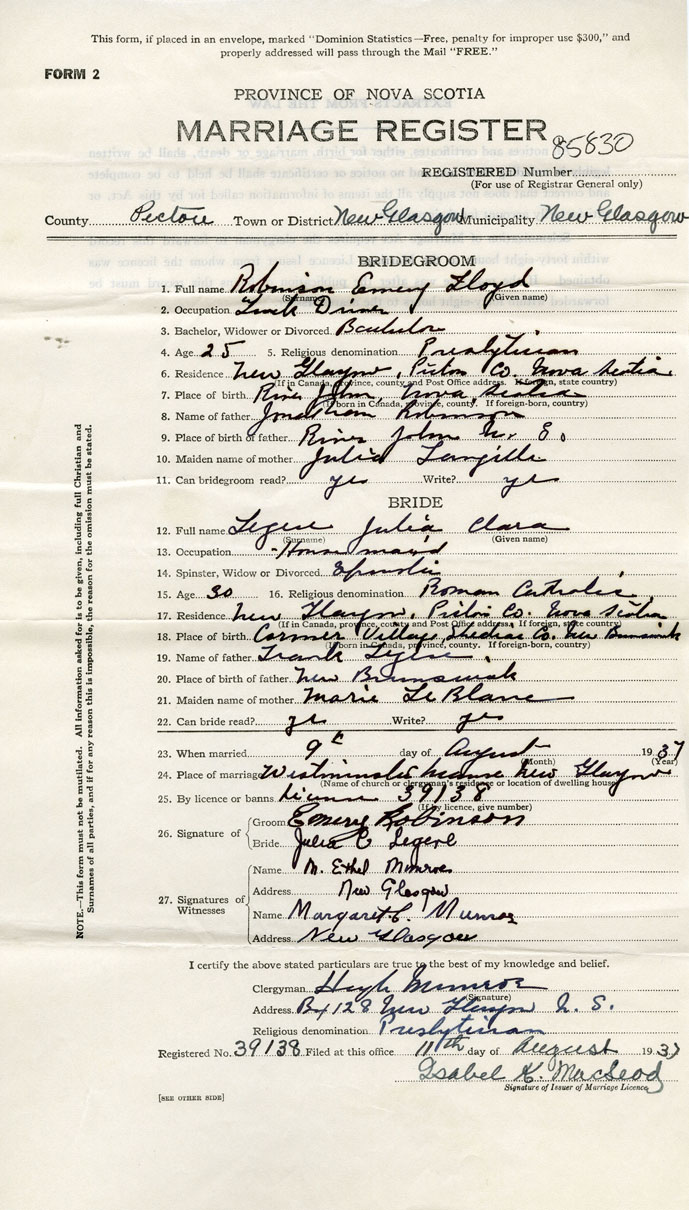 This form, if placed in an envelope, marked "Dominion Statistics—Free, penalty for improper use $300," and
properly addressed will pass through the Mail "FREE."
FORM 2
PROVINCE OF NOVA SCOTIA
MARRIAGE REGISTER
85830
REGISTERED Number
(For use of Registrar General only)
County Pictou Town or District New Glasgow Municipality New Glasgow
BRIDEGROOM
1. Full name Robinson Emery Floyd
(Surname) (Given name)
2. Occupation Truck Driver
3. Bachelor, Widower or Divorced Bachelor
4. Age 25 5. Religious denomination Presbyterian
6. Residence New Glasgow, Pictou Co. Nova Scotia
(If in Canada, province, county and Post Office address. If foreign, state country)
7. Place of birth River John, Nova Scotia
(If born in Canada, province, county. If foreign-born, country)
8. Name of father Jonathan Robinson
9. Place of birth of father River John N. S.
10. Maiden name of mother Julia Langille
11. Can bridegroom read? yes Write? yes
BRIDE
12. Full name Legere Julia Clara
(Surname) (Given name)
13. Occupation House maid
14. Spinster, Widow or Divorced Spinster
15. Age 30 16. Religious denomination Roman Catholic
17. Residence New Glasgow, Pictou Co. Nova Scotia
(If in Canada, province, county and Post Office address. If foreign, state country)
18. Place of birth Cormier Village, Shediac Co. New Brunswick
(If born in Canada, province, county. If foreign-born, country)
19. Name of father Frank Legere
20. Place of birth of father New Brunswick
21. Maiden name of mother Marie LeBlanc
22. Can bride read? yes Write? yes
23. When married 9th day of August 1937
(Month) (Year)
24. Place of marriage Westminster Manse New Glasgow
(Name of church or clergyman's residence or location of dwelling house)
25. By licence or banns License 39138
(If by licence, give number)
26. Signature of Groom Emery Robinson
Bride Julia C Legere
27. Signatures of Witnesses
Name M. Ethel Munroe
Address New Glasgow
Name Margaret C. Munroe
Address New Glasgow
I certify the above stated particulars are true to the best of my knowledge and belief.
Clergyman Hugh Munroe
(Signature)
Address Bx 128 New Glasgow N. S.
Religious denomination Presbyterian
Registered No. 39138 Filed at this office 11th day of August 1937
Isabel K. MacLeod
Signature of Issuer of Marriage Licence
[SEE OTHER SIDE]
NOTE.—This form must not be mutilated. All information asked for is to be given, including full Christian and
Surnames of all parties, and if for any reason this is impossible, the reason for the omission must be stated.